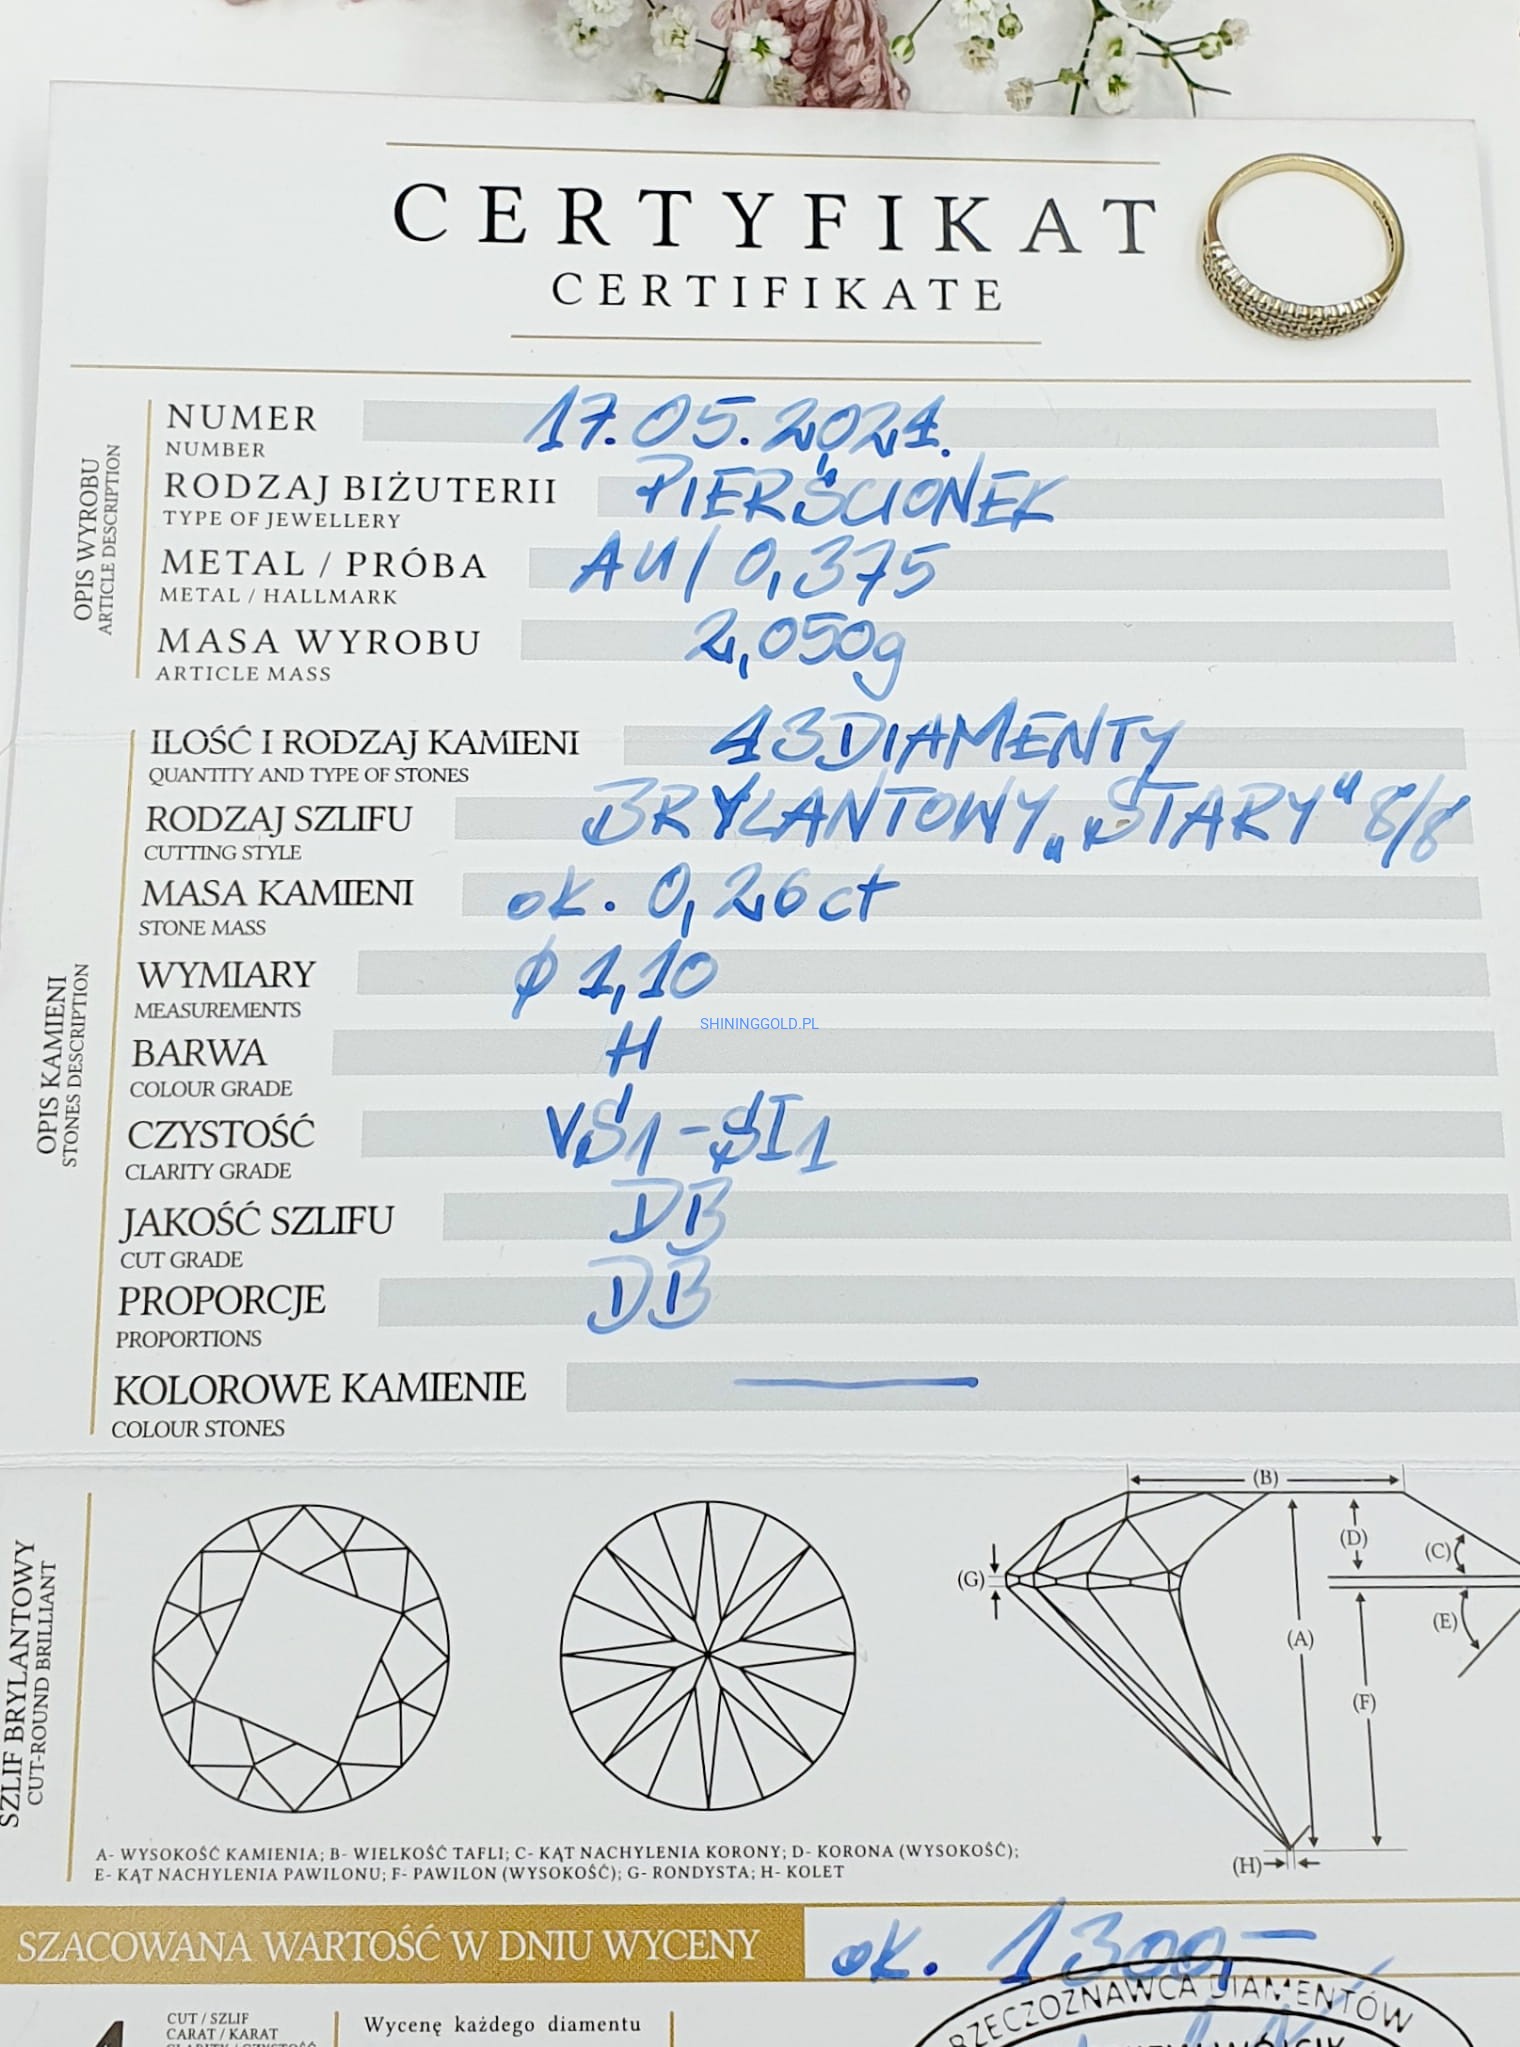 CERTYFIKAT
CERTIFIKATE
OPIS WYROBU
ARTICLE DESCRIPTION
NUMER 17.05.2024.
NUMBER
RODZAJ BIŻUTERII PIERŚCIONEK
TYPE OF JEWELLERY
METAL / PRÓBA AU/0,375
METAL / HALLMARK
MASA WYROBU 2,050g
ARTICLE MASS
OPIS KAMIENI
STONES DESCRIPTION
ILOŚĆ I RODZAJ KAMIENI DIAMENTY
QUANTITY AND TYPE OF STONES
RODZAJ SZLIFU BRYLANTOWY „STARY" 8/8
CUTTING STYLE
MASA KAMIENI ok. 0,26ct
STONE MASS
WYMIARY ϕ 1,10
MEASUREMENTS
SHININGGOLD.PL
BARWA H
COLOUR GRADE
CZYSTOŚĆ VS1-SI1
CLARITY GRADE
JAKOŚĆ SZLIFU DB
CUT GRADE
PROPORCJE DB
PROPORTIONS
KOLOROWE KAMIENIE —
COLOUR STONES
SZLIF BRYLANTOWY
CUT-ROUND BRILLIANT
(B)
(D)
(C)
(G)
(E)
(A)
(F)
(H)
A- WYSOKOŚĆ KAMIENIA; B- WIELKOŚĆ TAFLI; C- KĄT NACHYLENIA KORONY; D- KORONA (WYSOKOŚĆ);
E- KĄT NACHYLENIA PAWILONU; F- PAWILON (WYSOKOŚĆ); G- RONDYSTA; H- KOLET
SZACOWANA WARTOŚĆ W DNIU WYCENY ok. 1300,-
RZECZOZNAWCA DIAMENTÓW
CUT / SZLIF
CARAT / KARAT
Wycenę każdego diamentu